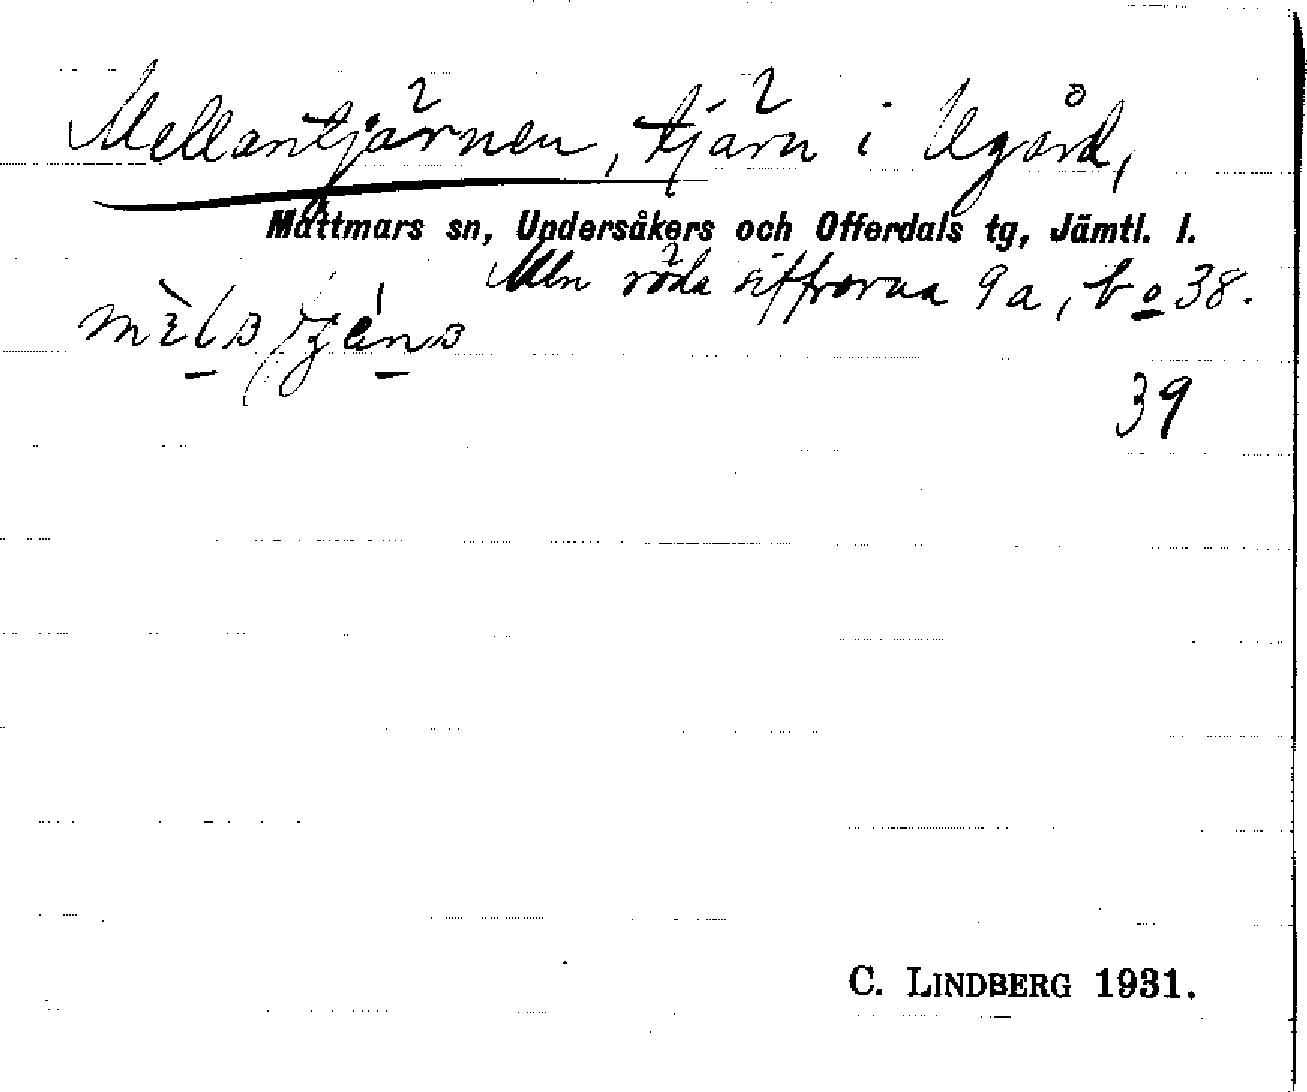 Mellantjärnen, tjärn i Ugård,
Mattmars sn, Undersåkers och Offerdals tg, Jämtl. l.
röda siffrorna 9a, b o 38.
39
C. LINDBERG 1931.